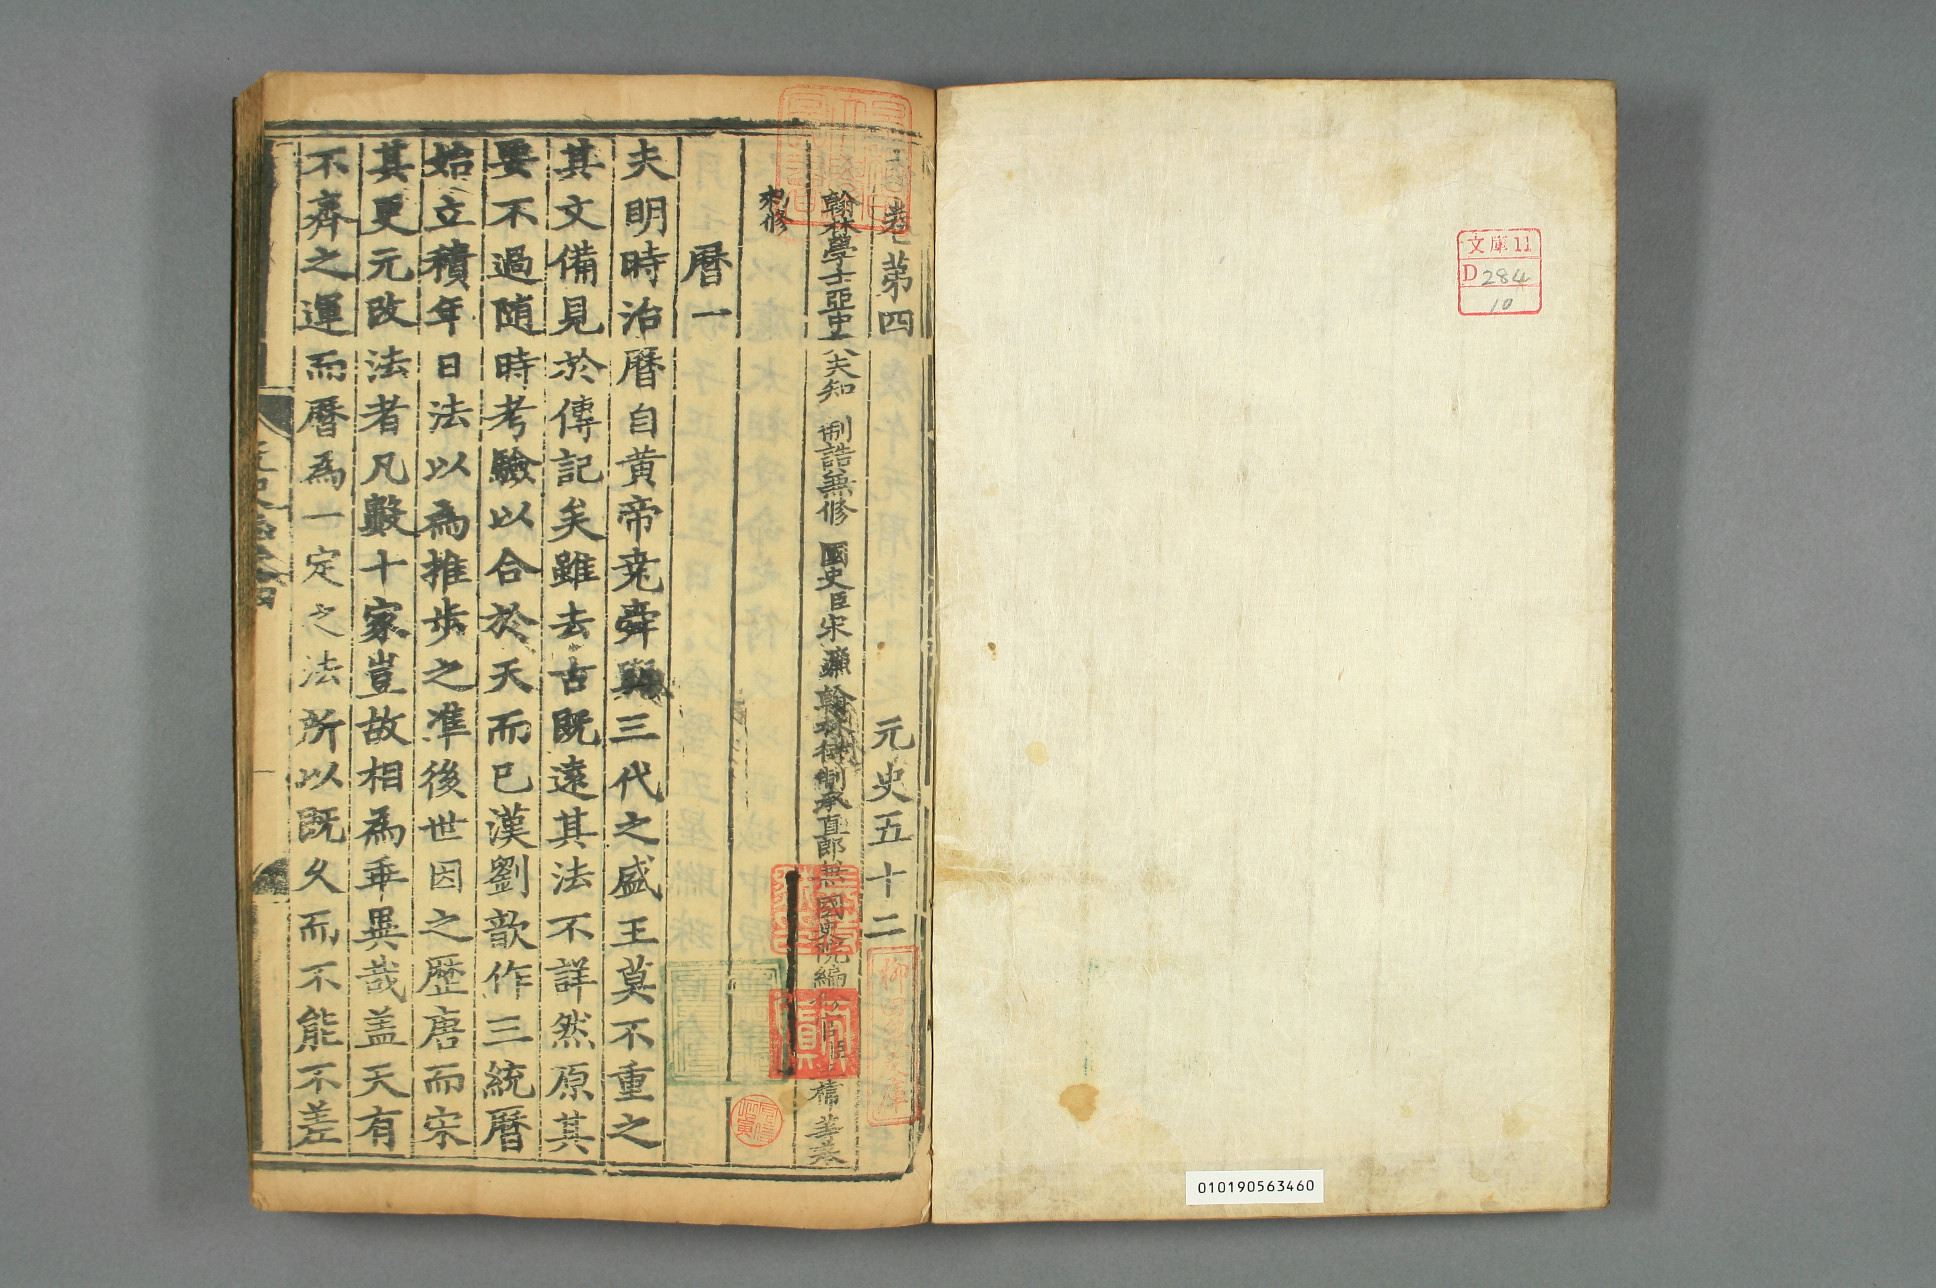 文庫11
D 284
10
010190563460
卷第四 元史五十二
翰林學士亞中大夫知 制誥兼修 國史臣宋濂 翰林待制承直郎兼國史院編
勑修
曆一
夫明時治曆自黄帝堯舜與三代之盛王莫不重之
其文備見於傳記矣雖去古既遠其法不詳然原其
要不過随時考驗以合於天而已漢劉歆作三統曆
始立積年日法以為推步之準後世因之歷唐而宋
其更元改法者凡數十家豈故相為乖異哉盖天有
不齊之運而曆為一定之法所以既久而不能不差